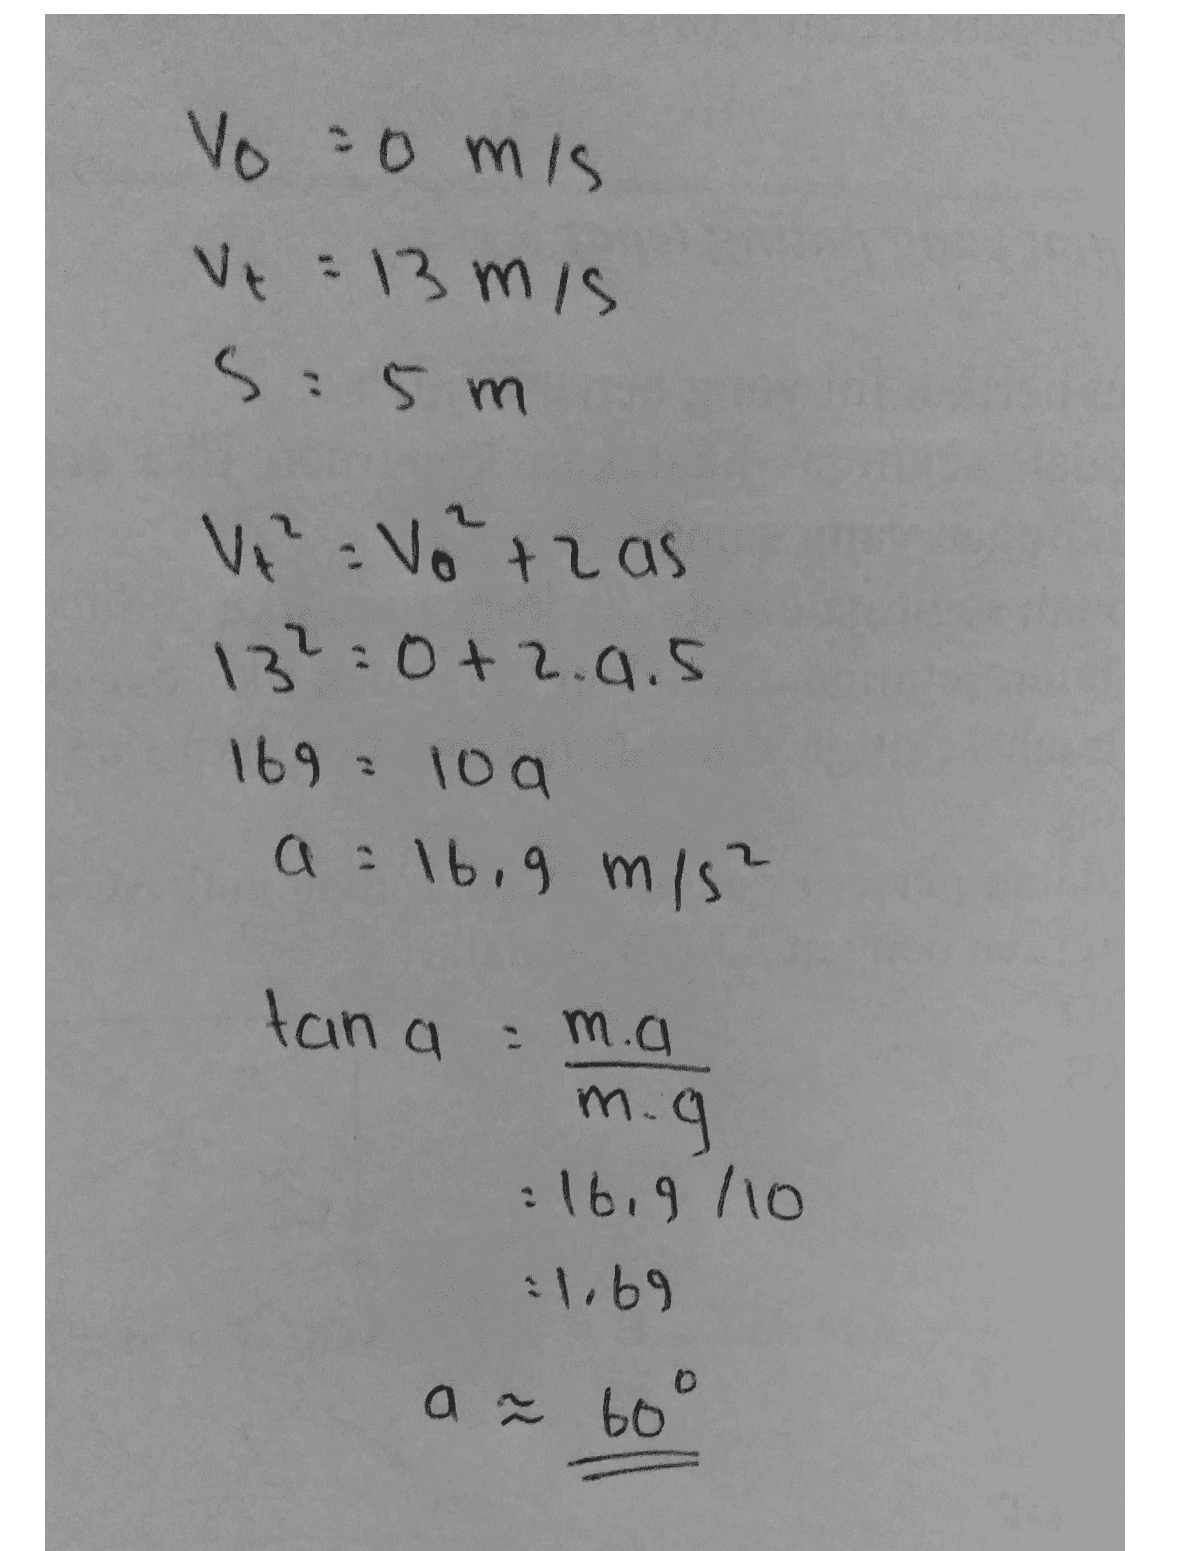 V₀ = 0 m/s
Vt = 13 m/s
S = 5 m
Vt² = V₀² + 2as
13² = 0 + 2.a.5
169 = 10a
a = 16,9 m/s²
tan a = m.a
m.g
= 16,9 /10
= 1,69
a ≈ 60°